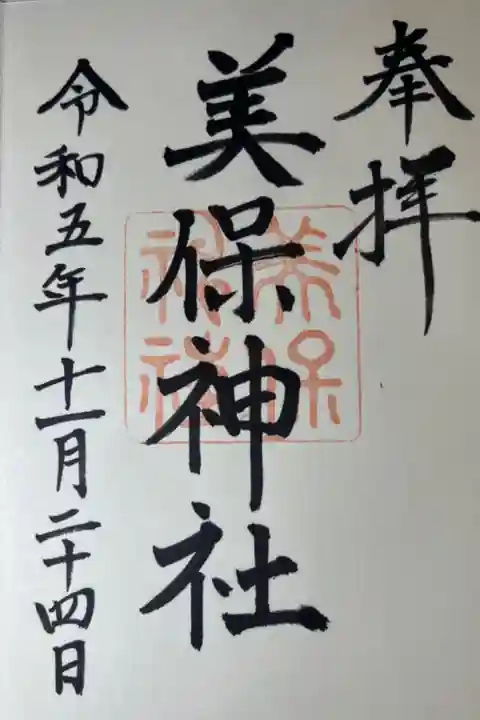 奉拝
美保神社
令和五年十一月二十四日
美保神社